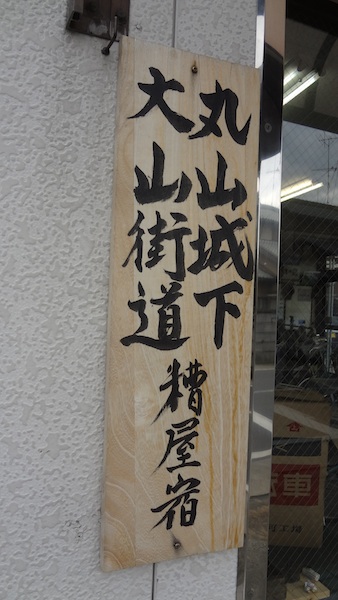 丸山城下
大山街道
糟屋宿
車